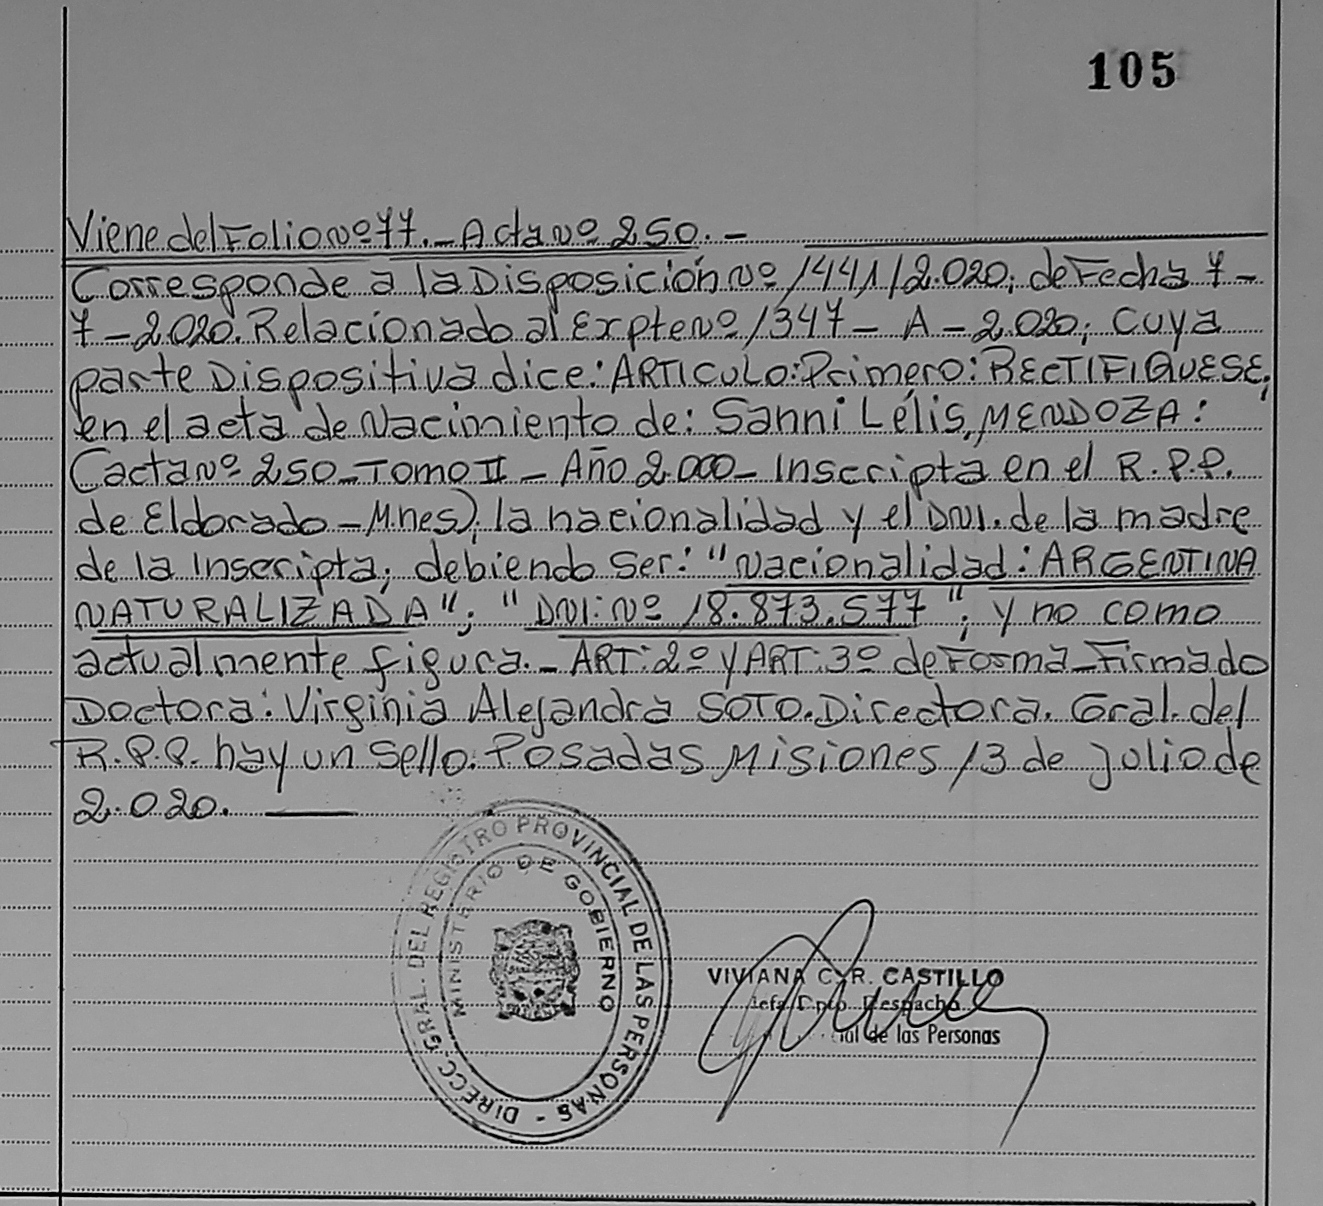 105
Viene del Folio Nº 77.- Acta Nº 250.-
Corresponde a la Disposición Nº 1441/2.020; de Fecha 7-
7-2.020. Relacionado al Expte Nº 1347- A - 2.020; Cuya
parte Dispositiva dice: ARTICULO: Primero: RECTIFIQUESE,
en el acta de Nacimiento de: Sanni Lélis, MENDOZA:
(acta Nº 250 - Tomo II - Año 2.000 - Inscripta en el R.P.P.
de Eldorado - Mnes); la nacionalidad y el DNI. de la madre
de la Inscripta; debiendo Ser: "Nacionalidad: ARGENTINA
NATURALIZADA"; "DNI: Nº 18.873.577"; y no como
actualmente figura. - ART: 2º y ART: 3º de Forma - Firmado
Doctora: Virginia Alejandra SOTO. Directora. Gral. del
R.P.P. hay un Sello. Posadas Misiones 13 de Julio de
2.020.
DIRECC. GRAL. DEL REGISTRO PROVINCIAL DE LAS PERSONAS -
MINISTERIO DE GOBIERNO
VIVIANA C. R. CASTILLO
Jefa Dpto. Despacho
de las Personas